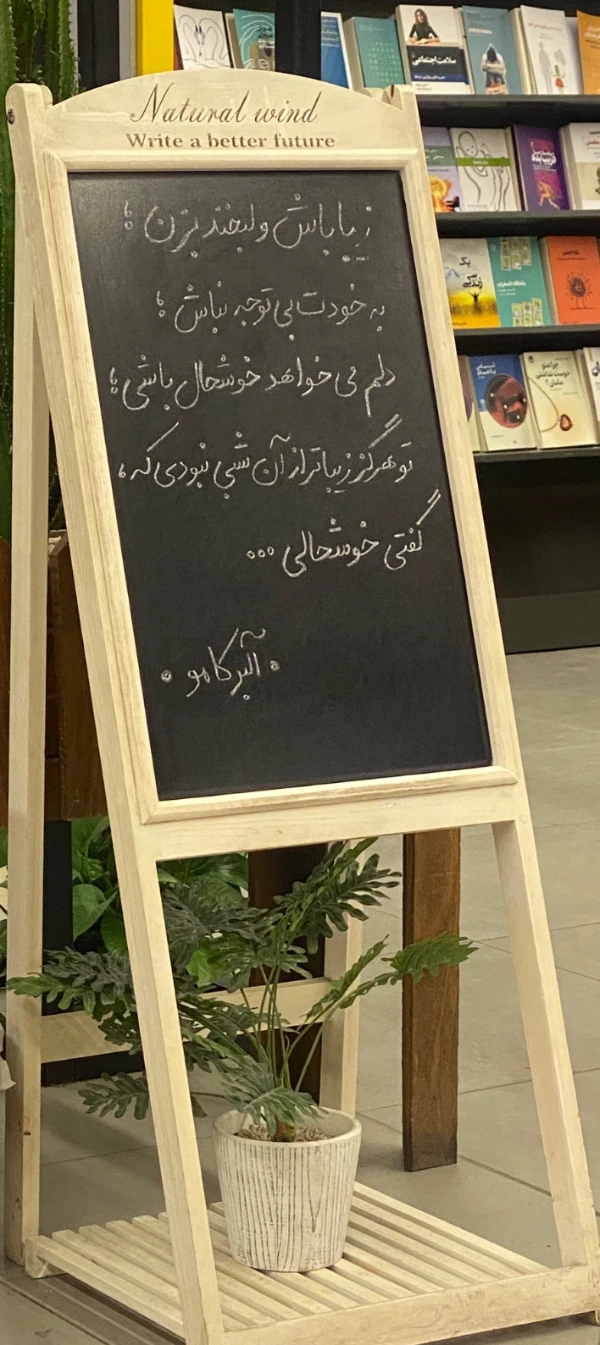 Natural wind
Write a better future
زیبا باش و لبخند بزن ؛
به خودت بی توجه نباش ؛
دلم می خواهد خوشحال باشی ؛
تو هرگز زیباتر از آن شبی نبودی که ،
گفتی خوشحالی ...
• آلبر کامو •
سلامت اجتماعی
یک
زندگی
چرا منو
دوست نداشتی
مامان؟